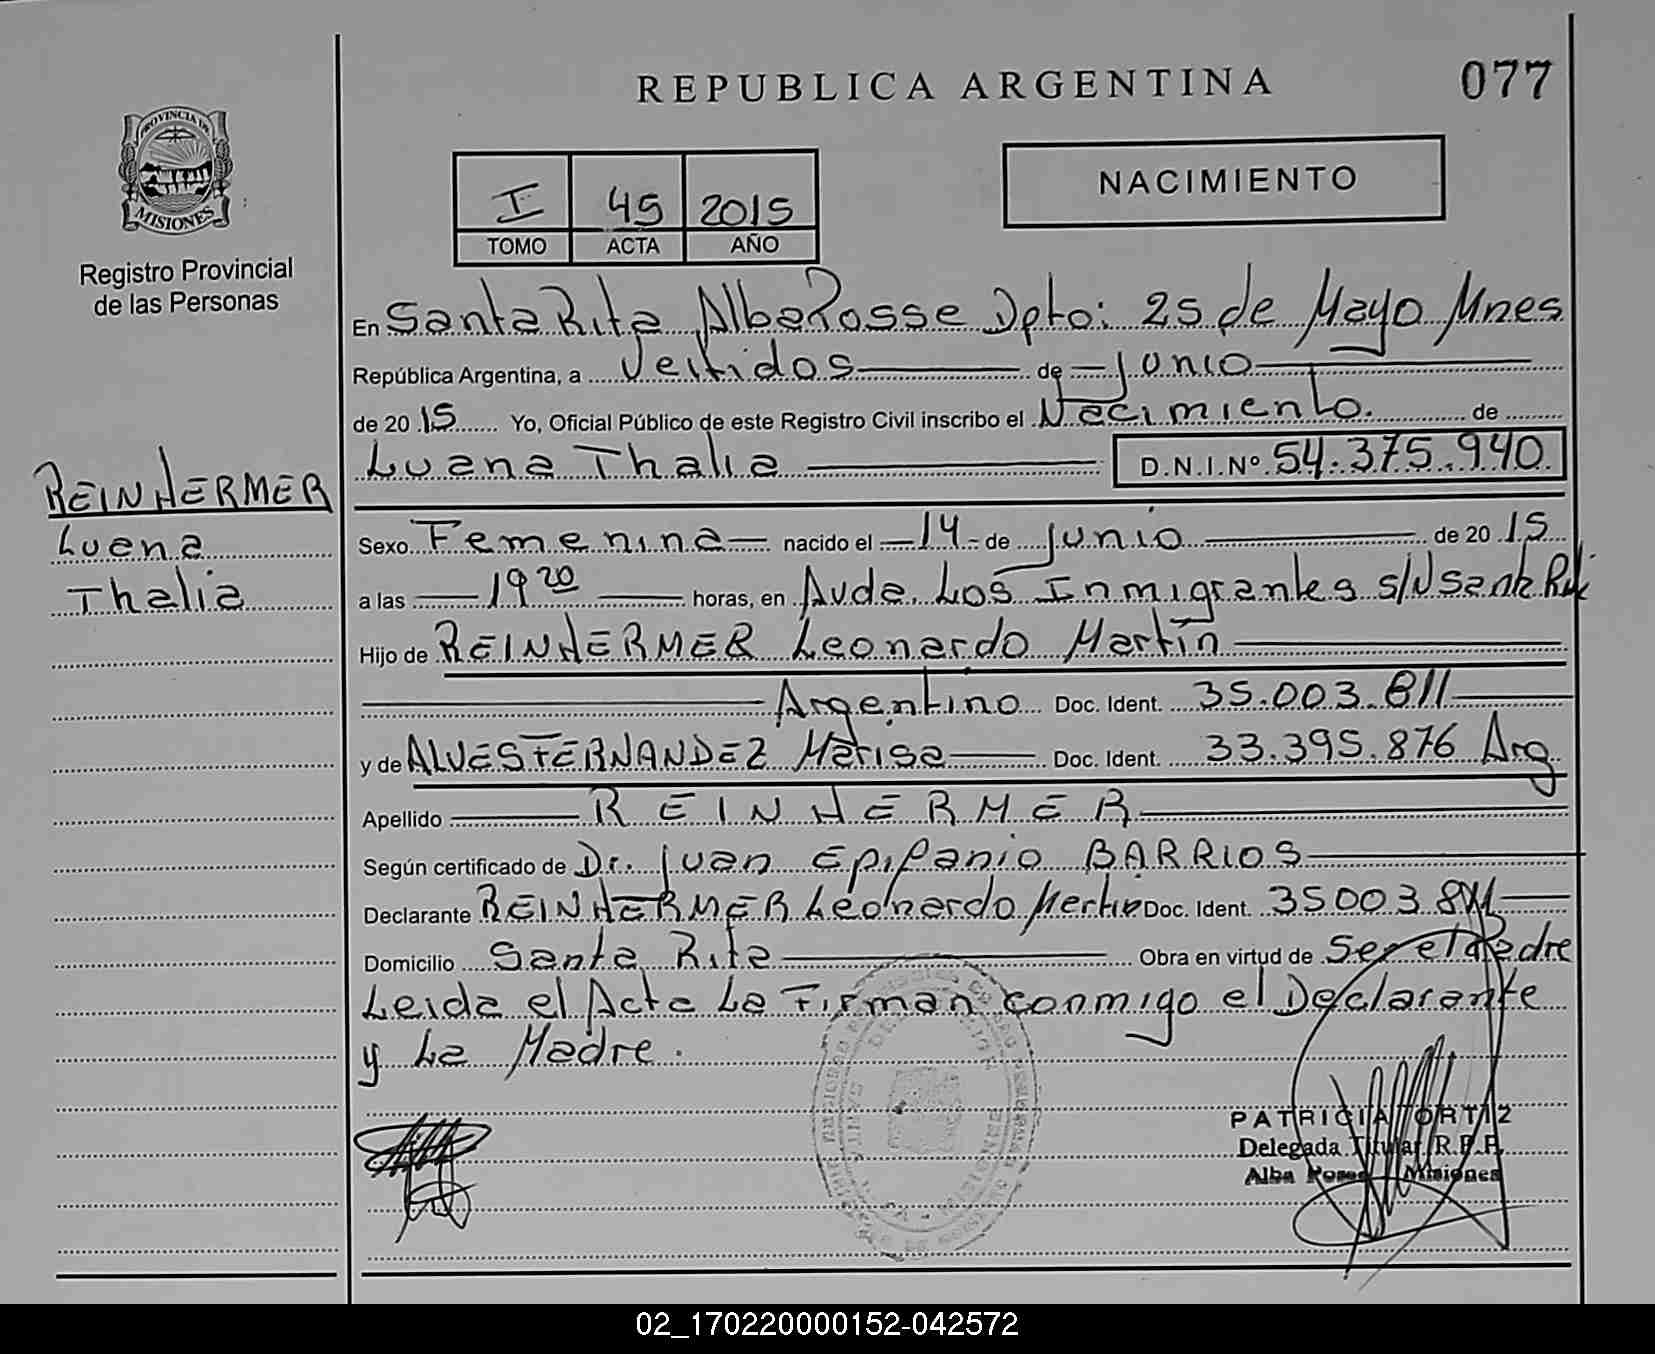 REPUBLICA ARGENTINA
077
PROVINCIA DE
MISIONES
Registro Provincial
de las Personas
I 45 2015
TOMO ACTA AÑO
NACIMIENTO
En Santa Rita Alba Posse Dpto: 25 de Mayo Mnes
República Argentina, a Veitidos de Junio
de 2015 Yo, Oficial Público de este Registro Civil inscribo el Nacimiento. de
Luana Thalia D.N.I.Nº 54.375.940
REINHERMER
Luana
Thalia
Sexo Femenina nacido el 14 de Junio de 2015
a las 19 20 horas, en Avda. Los Inmigrantes s/N Santa Rita
Hijo de REINHERMER Leonardo Martín
Argentino Doc. Ident. 35.003.811
y de ALVES FERNANDEZ Marisa Doc. Ident. 33.395.876 Arg
Apellido REINHERMER
Según certificado de Dr. Juan Epifanio BARRIOS
Declarante REINHERMER Leonardo Martin Doc. Ident. 35003811
Domicilio Santa Rita Obra en virtud de Ser el Padre
Leida el Acta La Firman conmigo el Declarante
y La Madre.
PATRICIA ORTIZ
Delegada Titular R.P.P.
Alba Posse Misiones
02_170220000152-042572